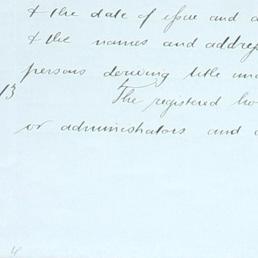 & the date of issue and d
& the names and addres
persons deriving title un
13 The registered ho
or administrators and